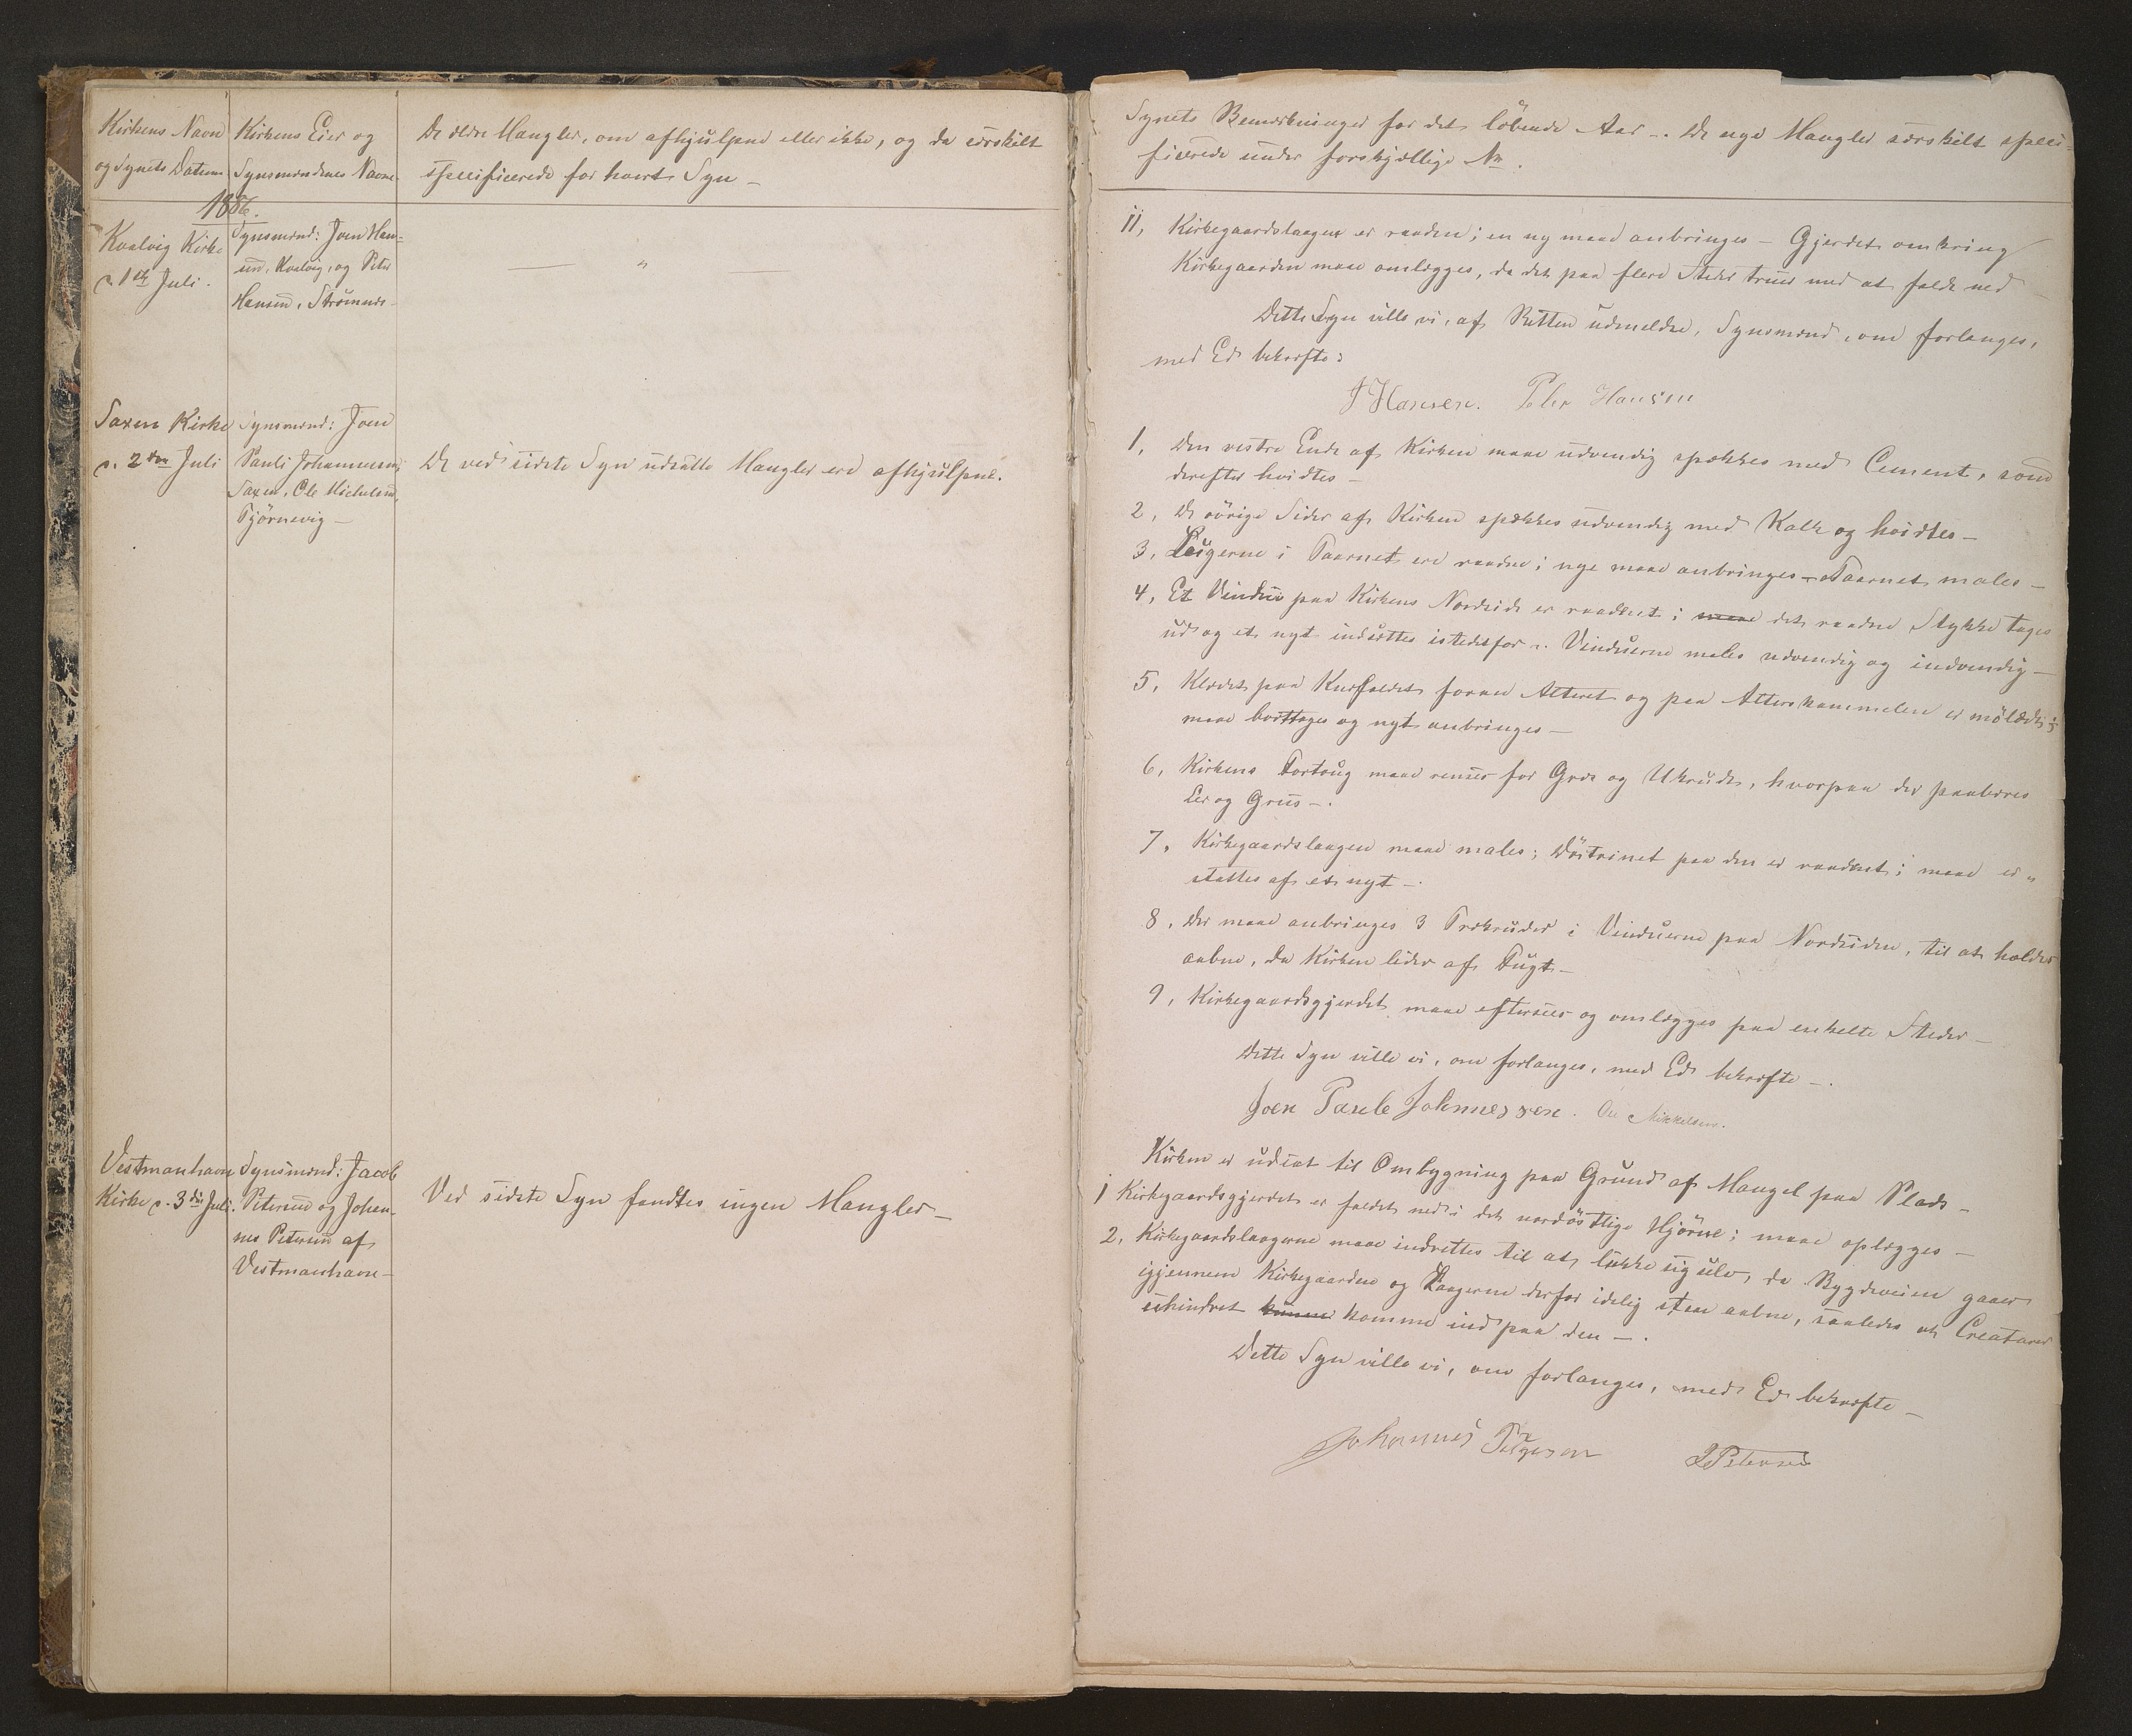 Kirkens Navn
og Synets Datum
Kirkens Eier og
Synsmændenes Navne
De ældre Mangler, om afhjulpne eller ikke, og da særskilt
specificerede for hvert Syn —
1856.
Kvalvig Kirke
d. 1ste Juli.
Synsmænd: Joen Han-
sen, Kvalvig, og Peter
Hansen, Strømnæs —
— " —
Saxen Kirke
d. 2den Juli
Synsmænd: Joen
Pauli Johannesen,
Saxen, Ole Michelsen,
Tjörnevig —
De ved sidste Syn udsatte Mangler ere afhjulpne.
Vestmanhavn
Kirke d. 3die Juli.
Synsmænd: Jacob
Petersen og Johan-
nes Petersen af
Vestmanhavn —
Ved sidste Syn fandtes ingen Mangler —
Synets Bemærkninger for det löbende Aar —. De nye Mangler særskilt speci-
ficerede under forskjællige No.
11, Kirkegaardslaagen er raaden; en ny maae anbringes — Gjerdet omkring
Kirkegaarden maae omlægges, da det paa flere Steder truer med at falde ned —
Dette Syn ville vi, af Retten udmeldte, Synsmænd, om forlanges,
med Ed bekræfte:
J Hansen. Peter Hansen
1, Den vestre Ende af Kirken maae udvendig spækkes med Cement, som
derefter hvidtes —
2, De övrige Sider af Kirken spækkes udvendig med Kalk og hvidtes —
3, Lugerne i Taarnet ere raadne; nye maae anbringes — Taarnet males —
4, Et Vindue paa Kirkens Nordside er raaddent; maae det raadne Stykke tages
ud og et nyt indsættes istedetfor —. Vinduerne males udvendig og indvendig —
5, Klædet paa Knæfaldet foran Alteret og paa Alterskammelen er mölædt;
maae borttages og nyt anbringes —
6, Kirkens Fortoug maae renses for Græs og Ukrudt, hvorpaa der paaböres
Ler og Gruus —.
7, Kirkegaardslaagen maae males; Dörtrinet paa den er raaddent; maae er-
stattes af et nyt —.
8, Der maae anbringes 3 Trækruder i Vinduerne paa Nordsiden, til at holdes
aabne, da Kirken lider af Fugt —
9, Kirkegaardsgjerdet maae eftersees og omlægges paa enkelte Steder —
Dette Syn ville vi, om forlanges, med Ed bekræfte —.
Joen Paule Johannessen. Ole Mikkelsen.
Kirken er udsat til Ombygning paa Grund af Mangel paa Plads —
1 Kirkegaardsgjerdet er faldet ned i det nordöstlige Hjörne; maae oplægges —
2, Kirkegaardslaagerne maae indrettes til at lukke sig selv, da Bygdeveien gaaer
igjennem Kirkegaarden og Laagerne derfor idelig staae aabne, saaledes at Creaturer
uhindret kunne komme ind paa den —.
Dette Syn ville vi, om forlanges, med Ed bekræfte —
Johannes Petersen J Petersen